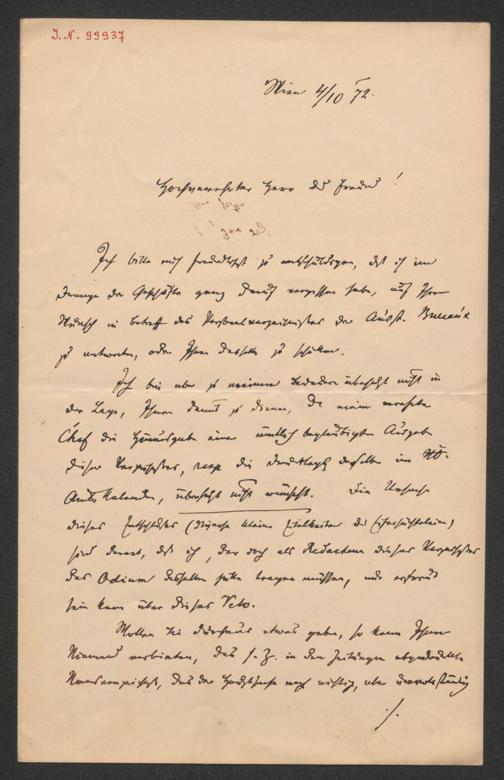 J.N. 99937
Wien 4/10 72.
Hochverehrter Herr
Ich bitte mich freundlichst zu entschuldigen, daß ich im
Drange der Geschäfte ganz darauf vergessen habe, auf Ihren
Wunsch in betreff des Personalverzeichnisses der Ausst. Bureaux
zu antworten, oder Ihnen dasselbe zu schicken.
Ich bin aber zu meinem Bedauern überhaupt nicht in
der Lage, Ihnen damit zu dienen, da mein verehrter
Chef die Herausgabe einer amtlich beglaubigten Ausgabe
dieses Verzeichnisses, resp. die Drucklegung desselben im
Amts Kalender, überhaupt nicht wünscht. Die Ursache
dieses Entschlusses (kleine Eitelkeiten der Eifersüchteleien)
sind derart, daß ich, der doch als Redacteur dieses Verzeichnisses
das Odium desselben hätte tragen müssen, nur erfreut
sein kann über dieses Veto.
Wollen Sie durchaus etwas geben, so kann Ihnen
Niemand verbieten, das s. Z. in den Zeitungen abgedruckte
Namensverzeichniß, das der Hauptsache nach richtig, aber unvollständig
./.